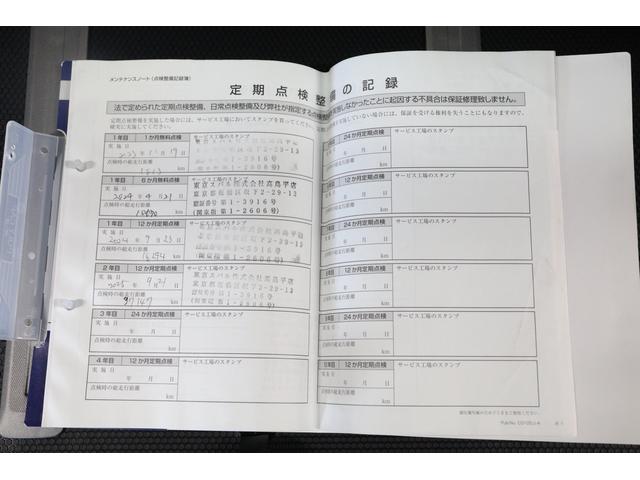 メンテナンスノート（点検整備記録簿）
定期点検整備の記録
法で定められた定期点検整備、日常点検整備及び弊社が指定する点検
施しなかったことに起因する不具合は保証修理致しません。
定期点検整備を実施した場合には、サービス工場においてスタンプを貰ってください。
確実に実施してください。
実施していない場合には、保証を受ける権利を失うことにもなりますので、
1年目 1か月無料点検 サービス工場のスタンプ
実施日
2023年11月19日
点検時の総走行距離
km
1年目 6か月無料点検 サービス工場のスタンプ
実施日
2024年4月21日
点検時の総走行距離
km
東京スバル株式会社高島平店
東京都板橋区坂下2-29-13
認証番号 第1-3916号
(関東指 第1-2606号)
1年目 12か月定期点検 サービス工場のスタンプ
実施日
2024年9月23日
点検時の総走行距離
km
東京スバル株式会社高島平店
東京都板橋区坂下2-29-13
認証番号 第1-3916号
(関東指 第1-2606号)
2年目 12か月定期点検 サービス工場のスタンプ
実施日
2025年9月21日
点検時の総走行距離
km
東京スバル株式会社高島平店
東京都板橋区坂下2-29-13
認証番号 第1-3916号
(関東指 第1-2606号)
3年目 24か月定期点検 サービス工場のスタンプ
実施日
年 月 日
点検時の総走行距離
km
4年目 12か月定期点検 サービス工場のスタンプ
実施日
年 月 日
点検時の総走行距離
km
24か月定期点検 サービス工場のスタンプ
年 月 日
点検時の総走行距離
km
12か月定期点検 サービス工場のスタンプ
年 月 日
点検時の総走行距離
km
24か月定期点検 サービス工場のスタンプ
年 月 日
点検時の総走行距離
km
12か月定期点検 サービス工場のスタンプ
年 月 日
点検時の総走行距離
km
24か月定期点検 サービス工場のスタンプ
実施日
年 月 日
点検時の総走行距離
km
12か月定期点検 サービス工場のスタンプ
実施日
年 月 日
点検時の総走行距離
km